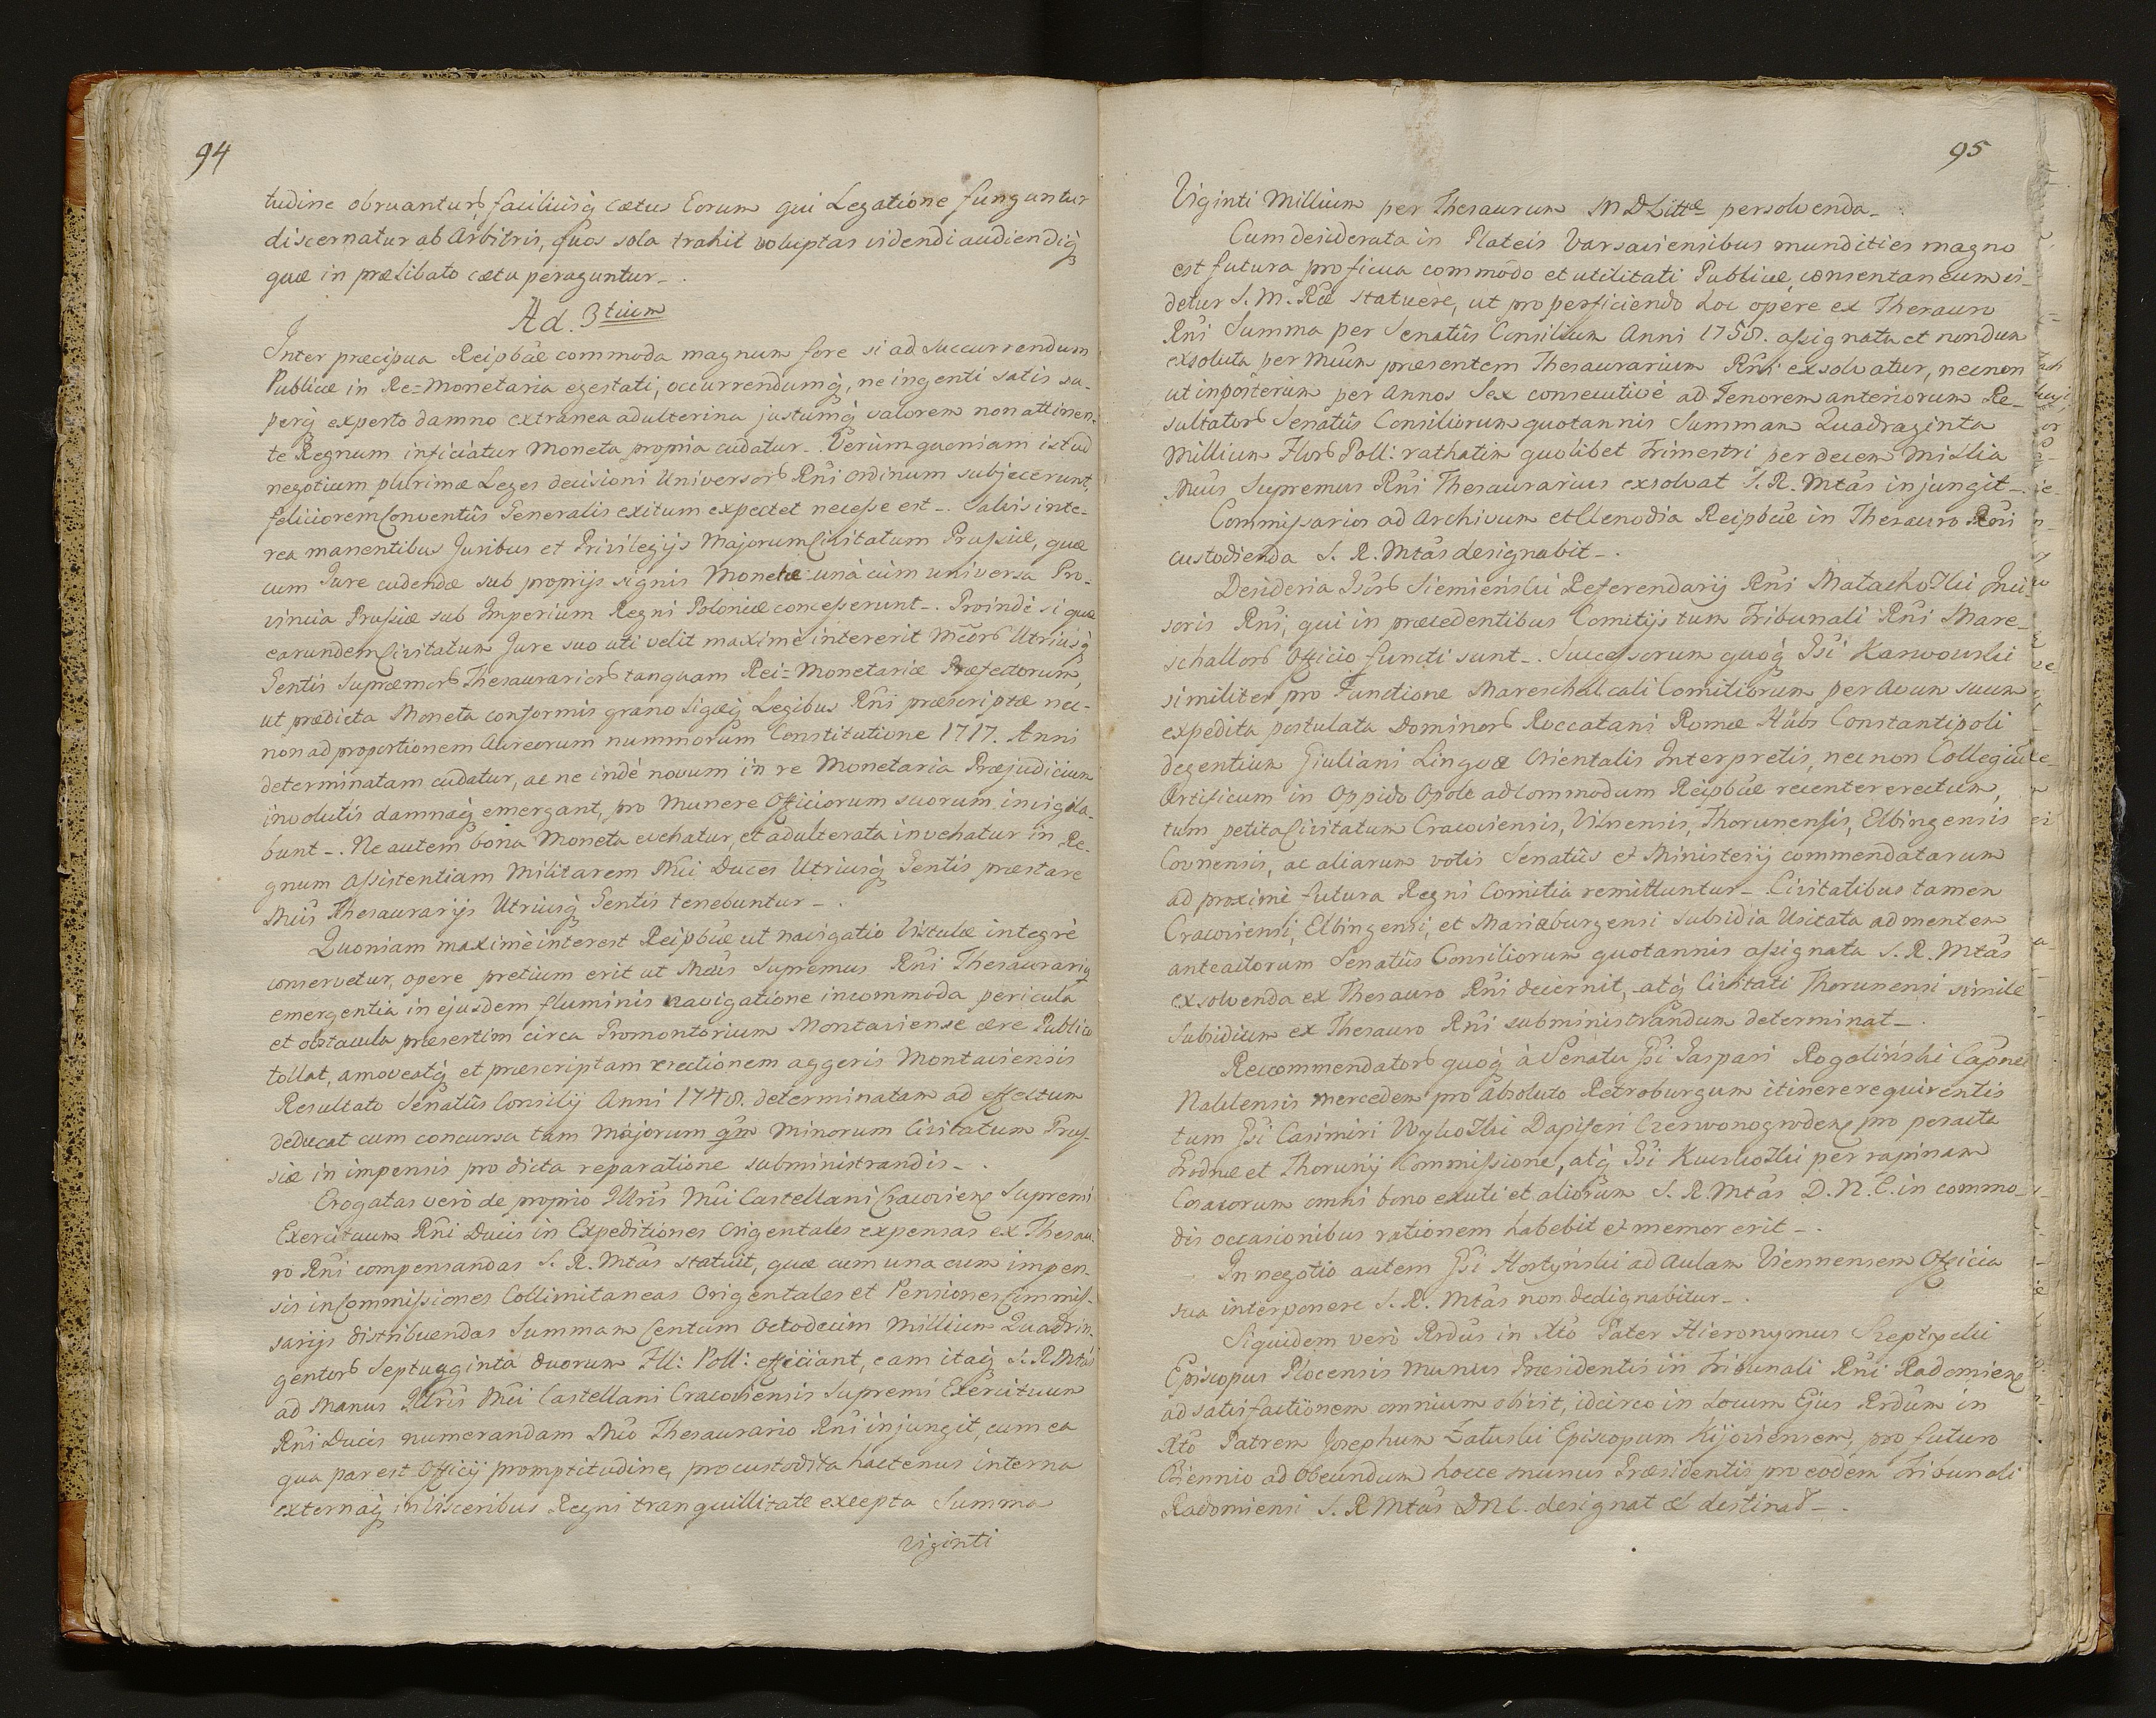 94
tudine obruantur, faciliusq́ cœtus Eorum qui Legatione funguntur
discernatur ab Arbitris, quos sola trahit voluptas videndi audiendiq́
quæ in prælibato cætu peraguntur_.
Ad. 3tium
Inter præcipua Reipbĉæ commoda magnum fore si ad succurrendum
Publicæ in Re=Monetaria egestati, occurrendumq́, ne ingenti satis su-
perq́ experto damno extranea adulterina justumq́ valorem non attinen-
te Regnum inficiatur Moneta propria cudatur_. Verùm quoniam istud
negotium plurimæ Leges decisioni Universor Rñi Ordinum subjecerunt,
feliciorem Conventûs Generalis exitum expectet necesse est_. Salvis inte-
rea manentibus Juribus et Privilegijs Majorum Civitatum Prussiæ, quæ
cum Jure cudendæ sub proprijs signis Monetæ unà cum universa Pro-
vincia Prussiæ sub Imperium Regni Poloniæ concesserunt_. Proindè si quæ
earundem Civitatum Jure suo uti velit maximè intererit Mcor Utriusq́
Gentis Supræmor Thesaurarior tanquam Rei=Monetariæ Præfectorum,
ut prædicta Moneta conformis grano ligæq́ Legibus Rñi præscriptæ nec-
non ad proportionem Aureorum nummorum Constitutione 1717. Anni
determinatam cudatur, ac ne indè novum in re Monetaria Præjudicium
involutis damnaq́ emergant, pro Munere Officiorum suorum invigila-
bunt_. Ne autem bona Moneta evehatur, et adulterata invehatur in Re-
gnum Assistentiam Militarem Mci Duces Utriusq́ Gentis præstare
Mcis Thesaurarijs Utriusq́ Gentis tenebuntur_.
Quoniam maximè interest Reipbĉæ ut navigatio Vistulæ integrè
conservetur, opere pretium erit ut Mcus Supremus Rñi Thesaurariq
emergentia in ejusdem fluminis navigatione incommoda pericula
et obstacula præsertim circa Promontorium Montaviense ære Publico
tollat, amoveatq́ et præscriptam erectionem aggeris Montaviensis
Resultato Senatûs Consilij Anni 1748. determinatam ad effectum
deducat cum concursu tam Majorum qm Minorum Civitatum Prus-
siæ in impensis pro dicta reparatione subministrandis_.
Erogatas verò de proprio Illris Mci Castellani Cracovien Supremi
Exercituum Rñi Ducis in Expeditiones Origentales expensas ex Thesau-
ro Rñi compensandas S. R. Mtas statuit, quæ cum una cum impen-
sis in Commissiones Collimitaneas Origentales et Pensiones Commis-
sarijs distribuendas Summam Centum Octodecim Millium Quadrin-
gentor Septuaginta duorum Fll: Poll: efficiant, eam itaq́ S. R Mtas
ad Manus Illris Mci Castellani Cracoviensis Supremi Exercituum
Rñi Ducis numerandam Mco Thesaurario Rñi injungit, cum ea
qua par est Officij promptitudine, pro custodita hactenus interna
externaq́ in visceribus Regni tranquillitate excepta Summa
viginti
95
Viginti Millium per Thesaurum M D Littæ persolvenda_.
Cum desiderata in Plateis Varsaviensibus mundities magno
est futura proficua commodo et utilitati Publicæ, consentaneum vi-
detur S. M. Rĉæ statuere, ut pro perficiendo hoc opere ex Thesauro
Rñi Summa per Senatûs Consilium Anni 1758. assignata et nondum
exsoluta per Mcum præsentem Thesaurarium Rñi exsolvatur, necnon
ut inposterùm per Annos Sex consecutivè ad Tenorem anteriorum Re-
sultator Senatûs Consiliorum quotannis Summam Quadraginta
Millium Flor Poll: rathatim quolibet Trimestri per decem Millia
Mcus Supremus Rñi Thesaurarius exsolvat S. R. Mtas injungit_.
Commissarios ad Archivum et Clenodia Reipbĉæ in Thesauro Rñi
custodienda S. R. Mtas designabit_.
Desideria Gsor Siemieński Referendarij Rñi Małachowski Inci-
soris Rñi, qui in præcedentibus Comitijs tum Tribunali Rñi Mare-
schallor Officio functi sunt_. Successorum quoq́ Gsi Karwowski
similiter pro Functione Mareschalcali Comitiorum per Avum suum
expedita postulata Dominor Roccatani Romæ Hübs Constantipoli
degentium Giuliani Linguæ Orientalis Interpretis, nec non Collegiũ
Artificum in Oppido Opole ad Commodum Reipbĉæ recenter erectum,
tum petita Civitatum Cracoviensis, Vilnensis, Thorunensis, Elbingensis
Covnensis, ac aliarum votis Senatûs et Ministerij commendatarum
ad proximè futura Regni Comitia remittuntur_. Civitatibus tamen
Cracoviensi, Elbingensi, et Mariæburgensi Subsidia Usitata ad mentem
anteactorum Senatûs Consiliorum quotannis assignata S. R. Mtas
exsolvenda ex Thesauro Rñi decernit, atq́ Civitati Thorunensi simile
Subsidium ex Thesauro Rñi subministrandum determinat_.
Recommendator quoq́ à Senatu Gsi Gaspari Rogaliński Capnei
Naklensis mercedem pro absoluto Petroburgum itinere requirentis
tum Gsi Casimiri Dapiferi Czerwonogroden pro peracta
Grodnæ et Thorunij Commissione, atq́ Gsi per rapinam
Cosacorum omni bono exuti et aliorum S. R. Mtas D. N. C. in commo-
dis occasionibus rationem habebit et memor erit_.
In negotio autem Gsi Hostyński ad Aulam Viennensem Officia
sua interponere S. R. Mtas non dedignabitur_.
Siquidem verò Rrdus in Xto Pater Hieronymus Szeptycki
Episcopus Plocensis Munus Præsidentis in Tribunali Rñi Radomien
ad satisfactionem omnium obivit, idcirco in Locum Ejus Rrdum in
Xto Patrem Josephum Załuski Episcopum Kijoviensem, pro futuro
Biennio ad obeundum hocce munus Præsidentis pro eodem Tribunali
Radomiensi S. R Mtas DNC. designat et destinat_.